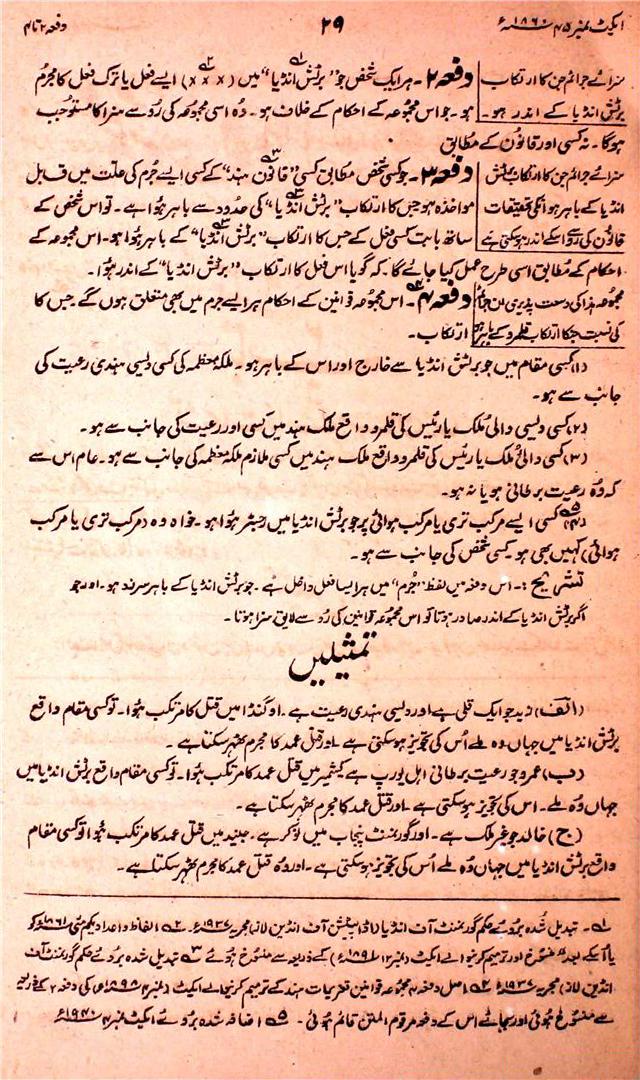 ایکٹ نمبر ۴۵ ۱۸۶۰ء ۲۹ دفعہ ۲ تا ۴
سزائے جرائم جن کا ارتکاب دفعہ ۲۔ ہر ایک شخص جو "برٹش انڈیا" میں (×××) ایسے فعل یا ترک فعل کا مجرم
برٹش انڈیا کے اندر ہو۔ ہو۔ جو اس مجموعہ کے احکام کے خلاف ہو۔ وہ اسی مجموعہ کی رو سے سزا کا مستوجب
ہوگا۔ نہ کسی اور قانون کے مطابق
سزائے جرائم جن کا ارتکاب برٹش دفعہ ۳۔ جو کسی شخص مطابق کسی "قانون ہند" کے کسی ایسے جرم کی علت میں قابل
انڈیا کے باہر ہو انکی تحقیقات مواخذہ ہو جس کا ارتکاب "برٹش انڈیا" کی حدود سے باہر ہوا ہے۔ تو اس شخص کے
قانون کی رو سے اسکے اندر ہو سکتی ہے ساتھ بابت کسی فعل کے جس کا ارتکاب "برٹش انڈیا" کے باہر ہوا ہو۔ اس مجموعہ کے
احکام کے مطابق اسی طرح عمل کیا جائے گا۔ کہ گویا اس فعل کا ارتکاب "برٹش انڈیا" کے اندر ہوا۔
مجموعہ ہذا کی وسعت پذیری ان جرائم دفعہ ۴۔ اس مجموعہ قوانین کے احکام ہر ایسے جرم میں بھی متعلق ہوں گے جس کا
کی نسبت جنکا ارتکاب قلمرو کے باہر ہو ارتکاب۔
(۱) کسی مقام میں جو برٹش انڈیا سے خارج اور اس کے باہر ہو۔ ملکہ معظمہ کی کسی دیسی ہندی رعیت کی
جانب سے ہو۔
(۲) کسی دیسی والی ملک یا رئیس کی قلمرو واقع ملک ہند میں کسی اور رعیت کی جانب سے ہو۔
(۳) کسی والئ ملک یا رئیس کی قلمرو واقع ملک ہند میں کسی ملازم ملکہ معظمہ کی جانب سے ہو۔ عام اس سے
کہ وہ رعیت برطانی ہو یا نہ ہو۔
(۴) کسی ایسے مرکب تری یا مرکب ہوائی پر جو برٹش انڈیا میں رجسٹر ہوا ہو۔ خواہ وہ مرکب تری یا مرکب
ہوائی کہیں بھی ہو کسی شخص کی جانب سے ہو۔
تشریح :۔ اس دفعہ میں لفظ "جرم" میں ہر ایسا فعل داخل ہے۔ جو برٹش انڈیا کے باہر سرزد ہو۔ اور جو
اگر برٹش انڈیا کے اندر صادر ہوتا تو اس مجموعہ قوانین کی رو سے لایق سزا ہوتا۔
تمثیلیں
(الف) زید جو ایک قلی ہے اور دیسی ہندی رعیت ہے۔ اوگنڈا میں قتل کا مرتکب ہوا۔ تو کسی مقام واقع
برٹش انڈیا میں جہاں وہ ملے اُس کی تجویز ہو سکتی ہے۔ اور قتل عمد کا مجرم ٹھہر سکتا ہے۔
(ب) عمرو جو رعیت برطانی اہل یورپ ہے کشمیر میں قتل عمد کا مرتکب ہوا۔ تو کسی مقام واقع برٹش انڈیا میں
جہاں وہ ملے۔ اس کی تجویز ہو سکتی ہے۔ اور قتل عمد کا مجرم ٹھہر سکتا ہے۔
(ج) خالد جو غیر ملک ہے۔ اور گورنمنٹ پنجاب میں نوکر ہے۔ جیند میں قتل عمد کا مرتکب ہوا تو کسی مقام
واقع برٹش انڈیا میں جہاں وہ ملے اُس کی تجویز ہو سکتی ہے۔ اور وہ قتل عمد کا مجرم ٹھہر سکتا ہے۔
۱؎ تبدیل شدہ بروئے حکم گورنمنٹ آف انڈیا (اڈاپٹیشن آف انڈین لاز) مجریہ ۱۹۳۷ء۔ ۲؎ الفاظ و اعداد یکم مئی ۱۸۶۱ء کو
یا اُسکے بعد" منسوخ اور ترمیم کرنیوالے ایکٹ (نمبر ۱۲ ۱۸۹۱ء) کے ذریعہ سے منسوخ ہوئے ۳؎ تبدیل شدہ بروئے حکم گورنمنٹ آف
انڈین لاز) مجریہ ۱۹۳۷ء ۴؎ اصل دفعہ ۴ مجموعہ قوانین تعزیرات ہند کے ترمیم کرنیوالے ایکٹ (نمبر ۴ ۱۸۹۸ء) کی دفعہ ۲ کے ذریعہ
سے منسوخ ہوئی اور بجائے اس کے دفعہ مرقوم المتن قائم ہوئی۔ ۵؎ اضافہ شدہ بروئے ایکٹ نمبر ۴ ۱۹۴۰ء